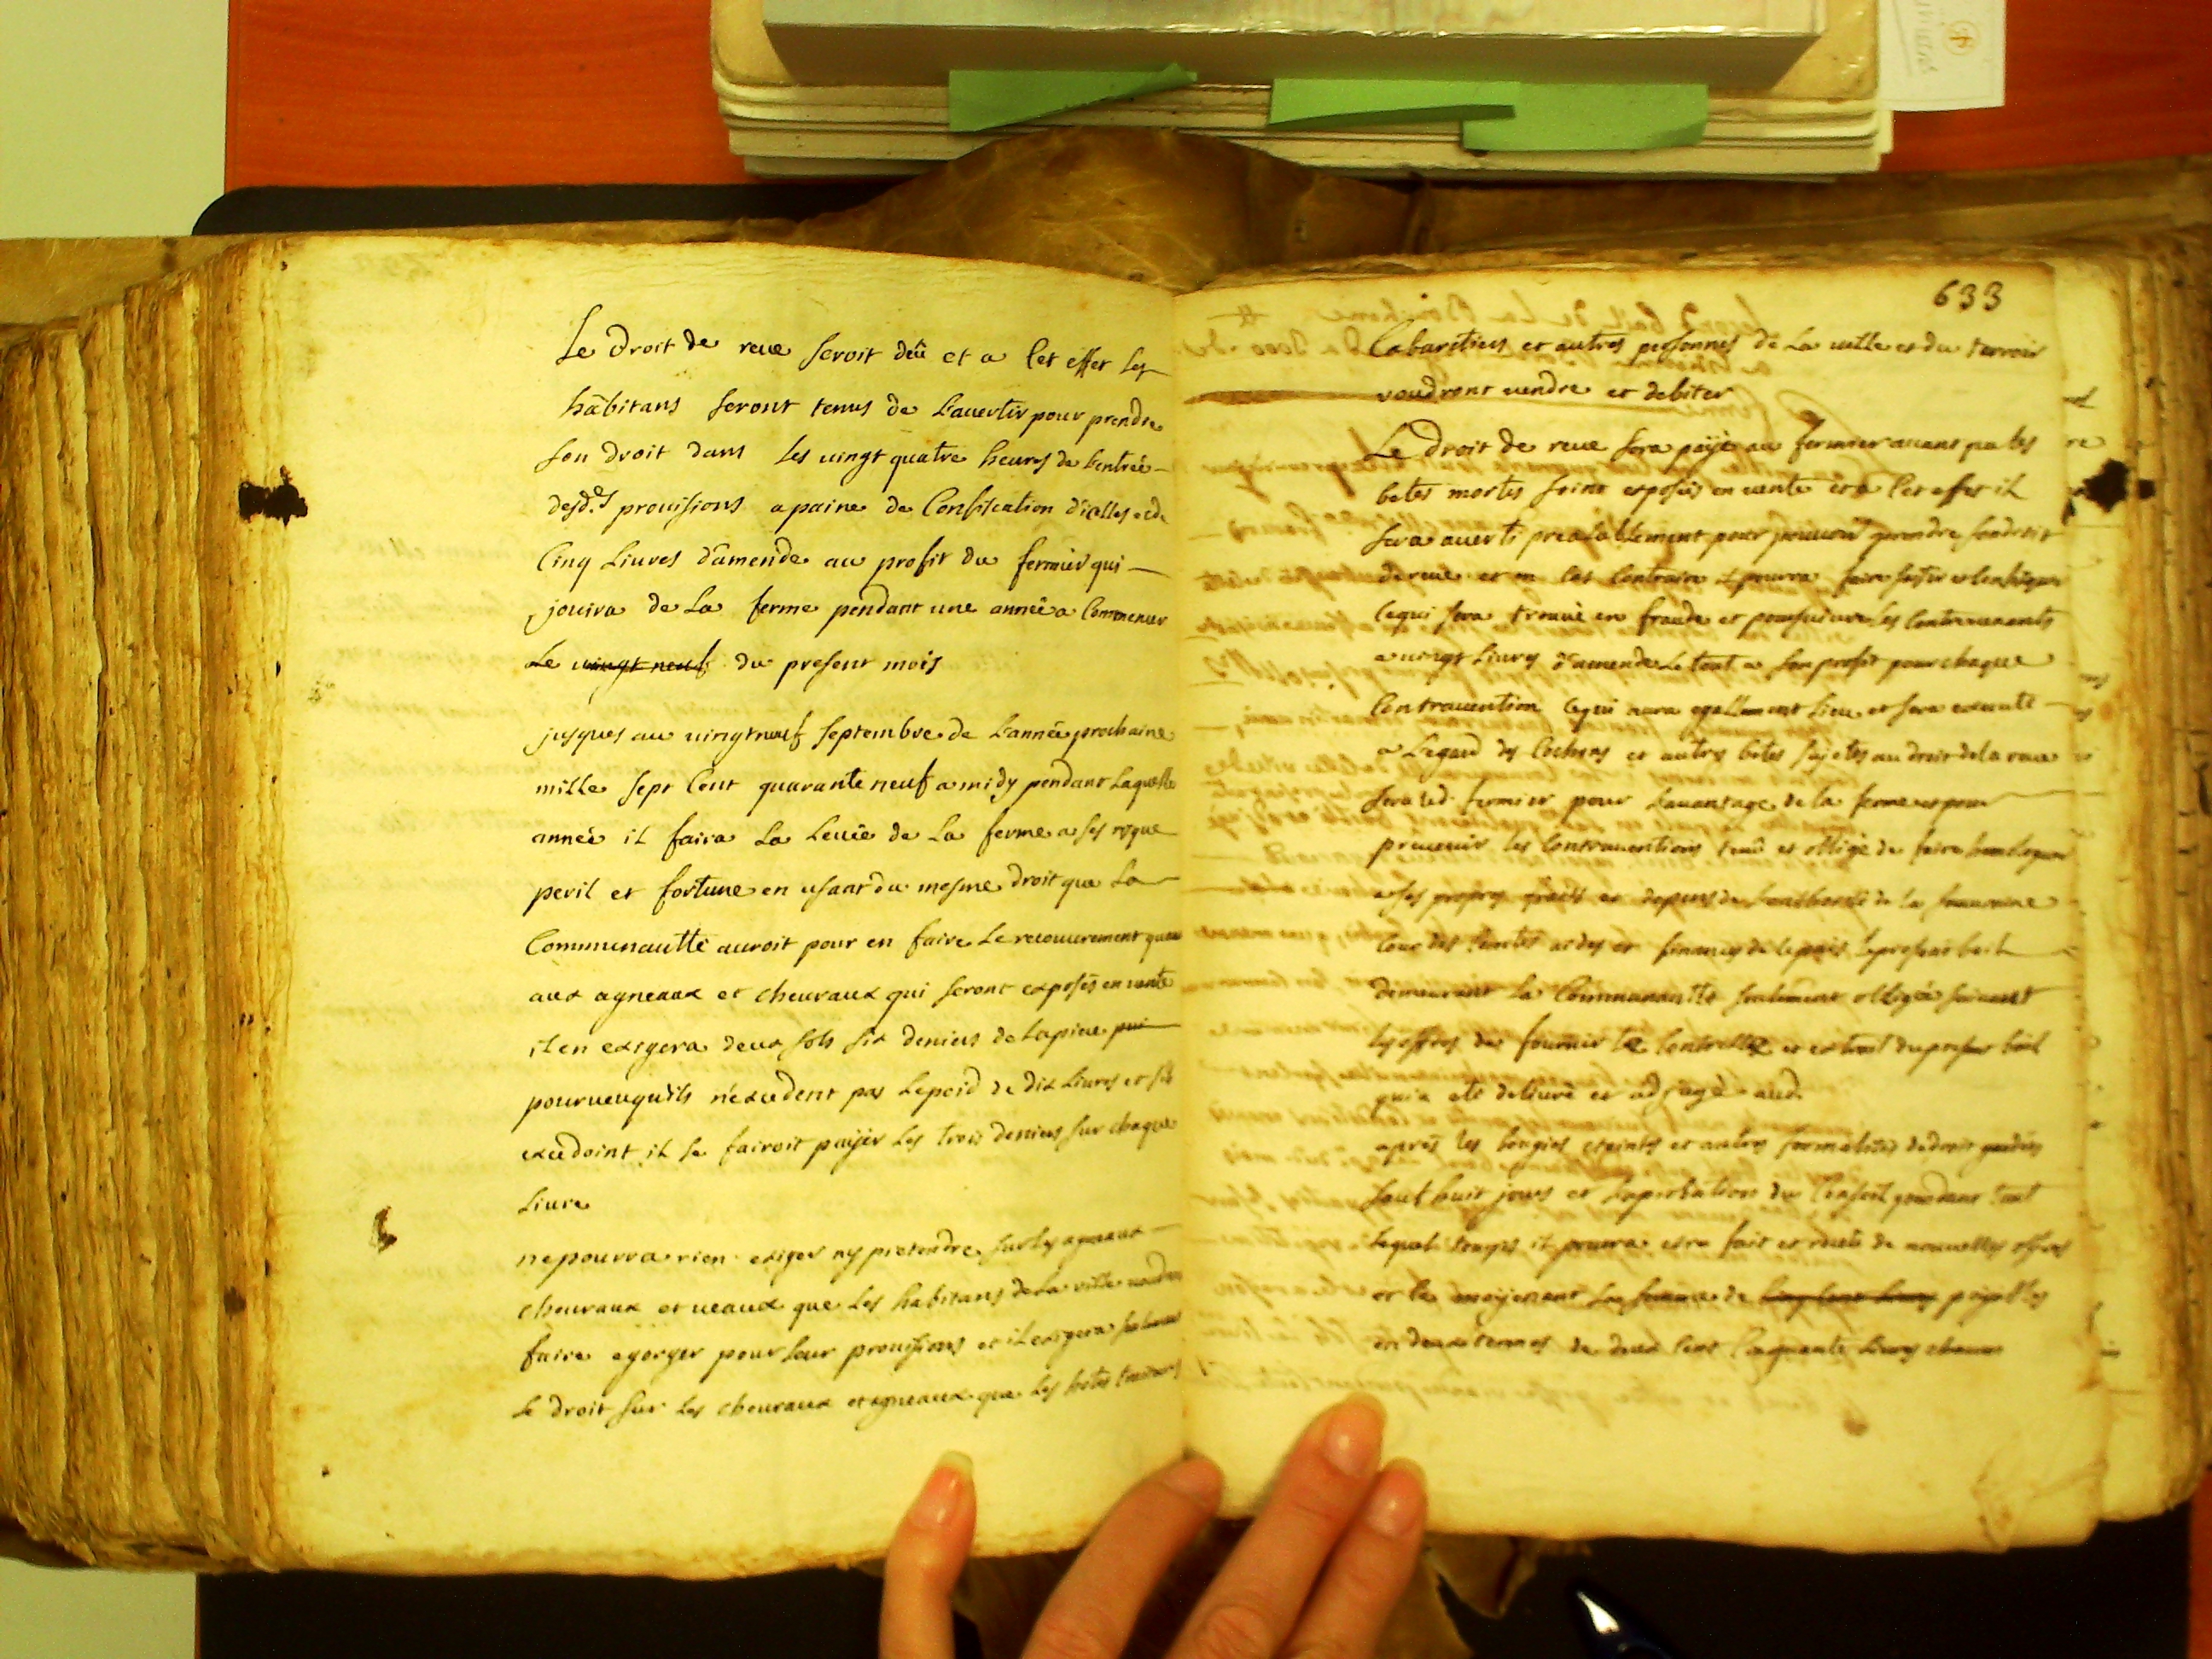 Le droit de reve seroit deü et a Cet effet Les
habitans seront tenus de L'avertir pour prendre
son droit dans les vingt quatre heures de L'entrée
desd.es provisions a paine de Confiscation d'icelles et de
Cinq Livres d'amende au profit du fermier qui
jouira de La ferme pendant une année a Commencer
Le vingt neuf du present mois
jusques au vingt neuf septembre de L'année prochaine
mille sept Cent quarante neuf a midy pendant Laquelle
année il faira La Levée de La ferme a ses risque
peril et fortune en usant du mesme droit que La
Communautté auroit pour en faire Le recouvrement quand
aux agneaux et chevraux qui seront exposés en vente
il en exigera deux sols six deniers de La piece
pourveu qu'ils n'excedent pas Le poid de dix Livres et s'ils
excedoint il se fairoit payer Les trois deniers sur chaque
Livre
ne pourra rien exiger ny pretendre sur Les agneaux
chevraux et veaux que Les habitans de La ville voudront
faire egorger pour Leur provisions et il exigera seulement
Le droit sur Les chevraux et agneaux que Les hotes
633
Cabaretiers et autres personnes de La ville et du terroir
voudront vendre et debiter
Le droit de reve sera payé au fermier avant que les
betes mortes soint exposées en vente et a Cet effet il
sera averti prealablement pour pouvoir prendre son droit
de reve et en Cas Contraire il pourra faire saisir et Confisquer
Ce qui sera trouvé en fraude et poursuivre les Contrevenants
a vingt Livres d'amende Le tout a son profit pour chaque
Contravention Ce qui aura egallement Lieu et sera executé
a L'egard des Cochons et autres betes sujetes au droit de la reve
sera Led. fermier pour L'avantage de la ferme et pour
prevenir les Contraventions tenû et obligé de faire homologuer
a ses propres fraits et depens de L'authorité de la souveraine
Cour des Comtes aides et finances de Ce pais Le present bail
demeurant La Communautté seulement obligée suivant
Les offres de fournir Le Controlle et extrait du present bail
qui a eté delivré et adjugé aud.
aprés les bougies eteintes et autres formalités de droit gardées
sauf huit jours et L'aprobation du Conseil pendant tout
Lequel temps il pourra etre fait et receu de nouvelles offres
et Ce moyenant La somme de Cinq Cent Livres payables
en deux termes de deux Cent Cinquante Livres chacun